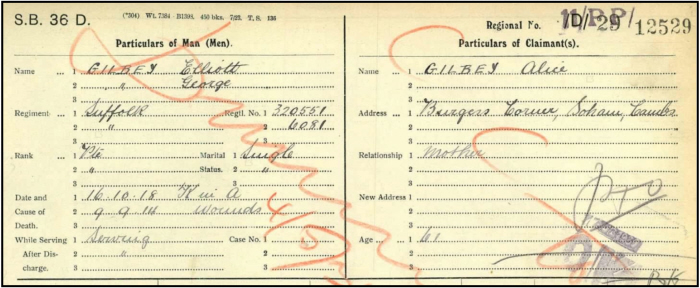 S.B. 36 D. (*304) Wt. 7364 - B1398. 450 bks. 7/23. T. S. 136
Regional No. 11/P.P/
/D/ 29 12529
Particulars of Man (Men).
Name ... 1 GILBEY Elliott
2 " George
3
Regiment 1 Suffolk Regtl. No. 1 320551
2 " 2 6081
3 3
Rank 1 Pte Marital 1 Single
2 " Status. 2 "
3 3
Date and 1 16.10.18 K in A
Cause of 2 9.9.14 wounds
Death. 3
While Serving 1 Serving Case No. 1
After Dis- 2 " 2
charge. 3 3
Particulars of Claimant(s).
Name ... 1 GILBEY Alice
2
3
Address ... 1 Burgers Corner, Soham, Cambs
2
3
Relationship 1 Mother
2
3
New Address 1 PTO
2
3
Age ... ... 1 61
2
3